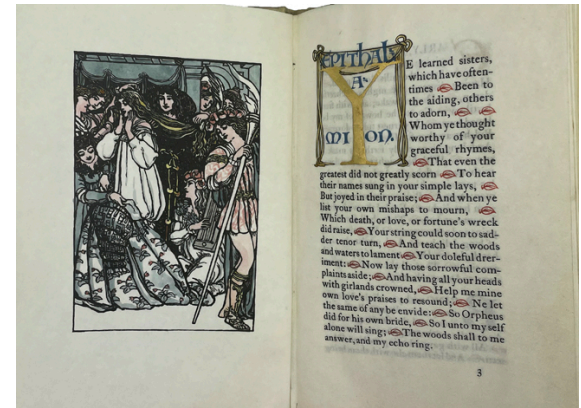 EPITHAL
A·
MI ON.
YE learned sisters,
which have often-
times Been to
the aiding, others
to adorn,
Whom ye thought
worthy of your
graceful rhymes,
That even the
greatest did not greatly scorn To hear
their names sung in your simple lays,
But joyed in their praise; And when ye
list your own mishaps to mourn,
Which death, or love, or fortune's wreck
did raise, Your string could soon to sad-
der tenor turn, And teach the woods
and waters to lament Your doleful drer-
iment: Now lay those sorrowful com-
plaints aside; And having all your heads
with girlands crowned, Help me mine
own love's praises to resound; Ne let
the same of any be envide: So Orpheus
did for his own bride, So I unto my self
alone will sing; The woods shall to me
answer, and my echo ring.
3